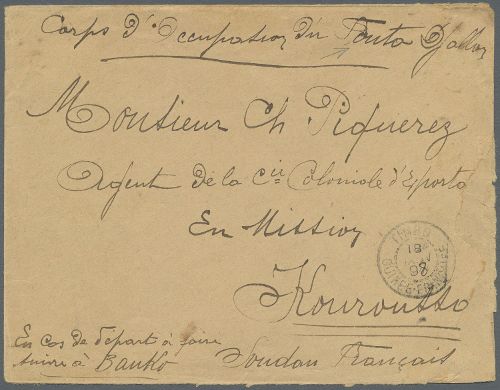 Corps d'Occupation du Fouta Djallon
Monsieur Ch Piquerez
Agent de la Cie Coloniale d'Exporto
En Mission
TIMBO
18
98
GUINÉE FRANÇAISE
Kouroussa
En cas de départ à faire
suivre à Banko
Soudan Français